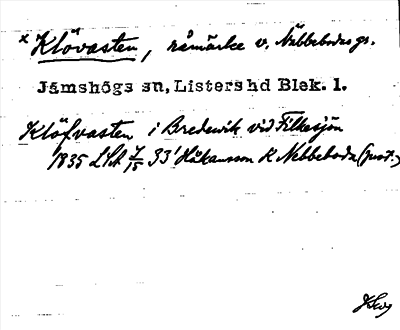 × Klövasten, råmärke v. Näbbebodas gr.
Jämshögs sn, Listers hd Blek. l.
Klöfvasten i Bredewik vid Filkesjön
1835 LSA 7/15 33' Håkansson K Nebbeboda (just.)